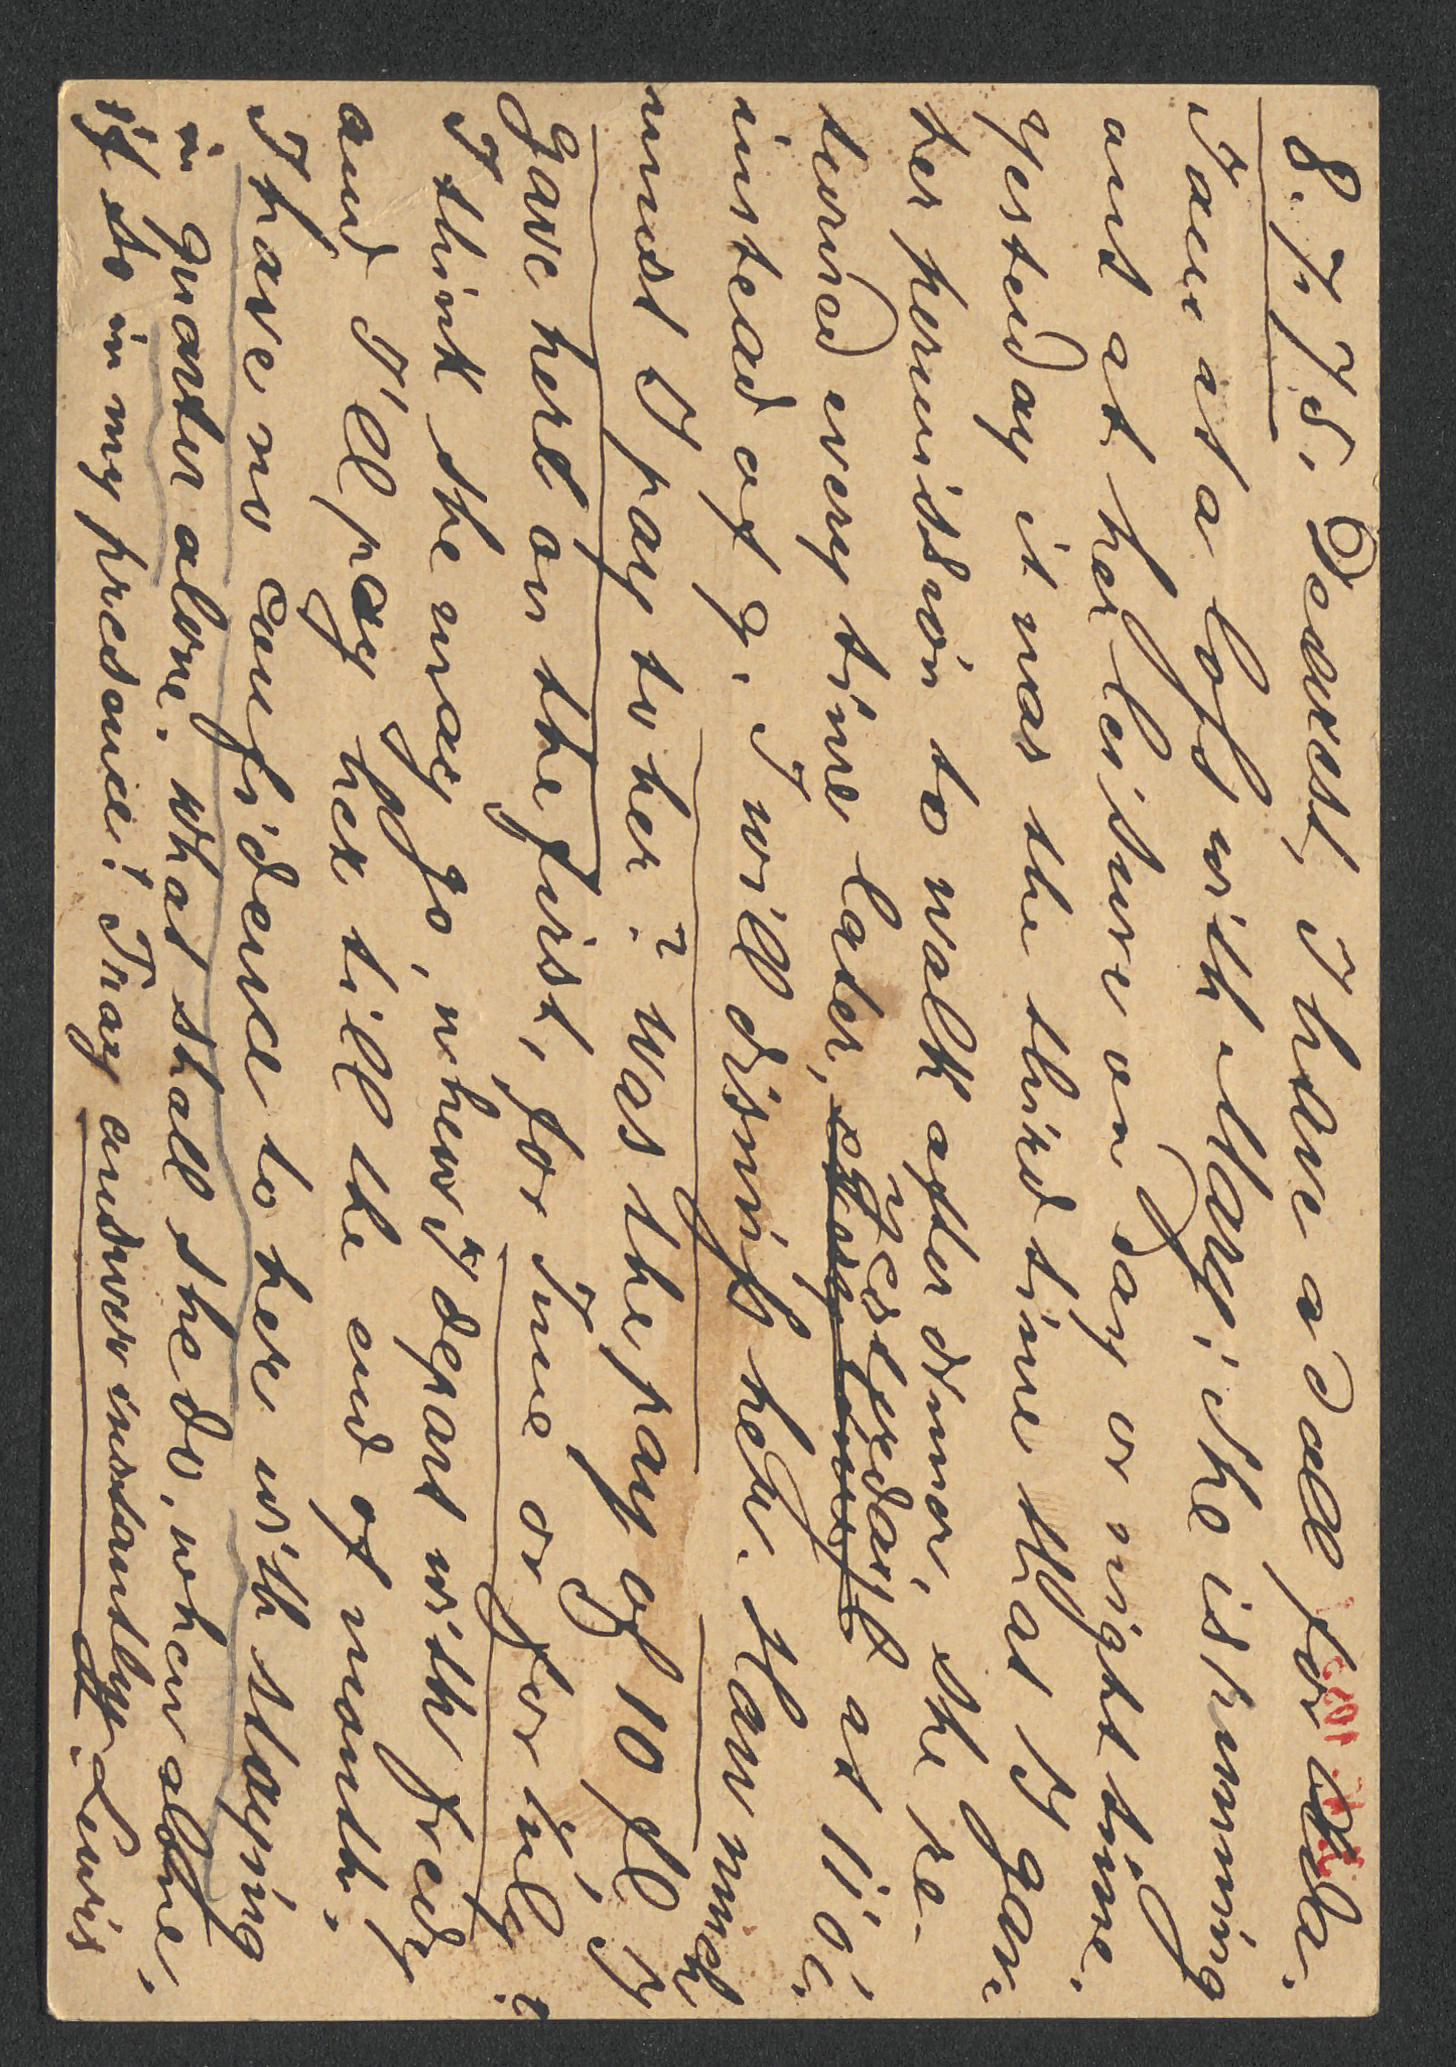 8. 7. 75. Dearest, I have a call for
I am at a loss with Mary! She is running
out at her leisure on day or night time.
Yesterday it was the third time that I gave
her permission to walk after dinner, she re-
turned every time later, yesterday at 11 o'c.
instead of 9. I will dismiss her. How much
must I pay to her? Was the pay of 10 fl I
gave her on the first, for June or for July?
I think she may go, when I depart with Fredy
and I'll pay her till the end of month.
I have no confidence to her with staying
in quarter alone. What shall she do, when alone,
if so in my presence! Pray answer instantly. Lewis